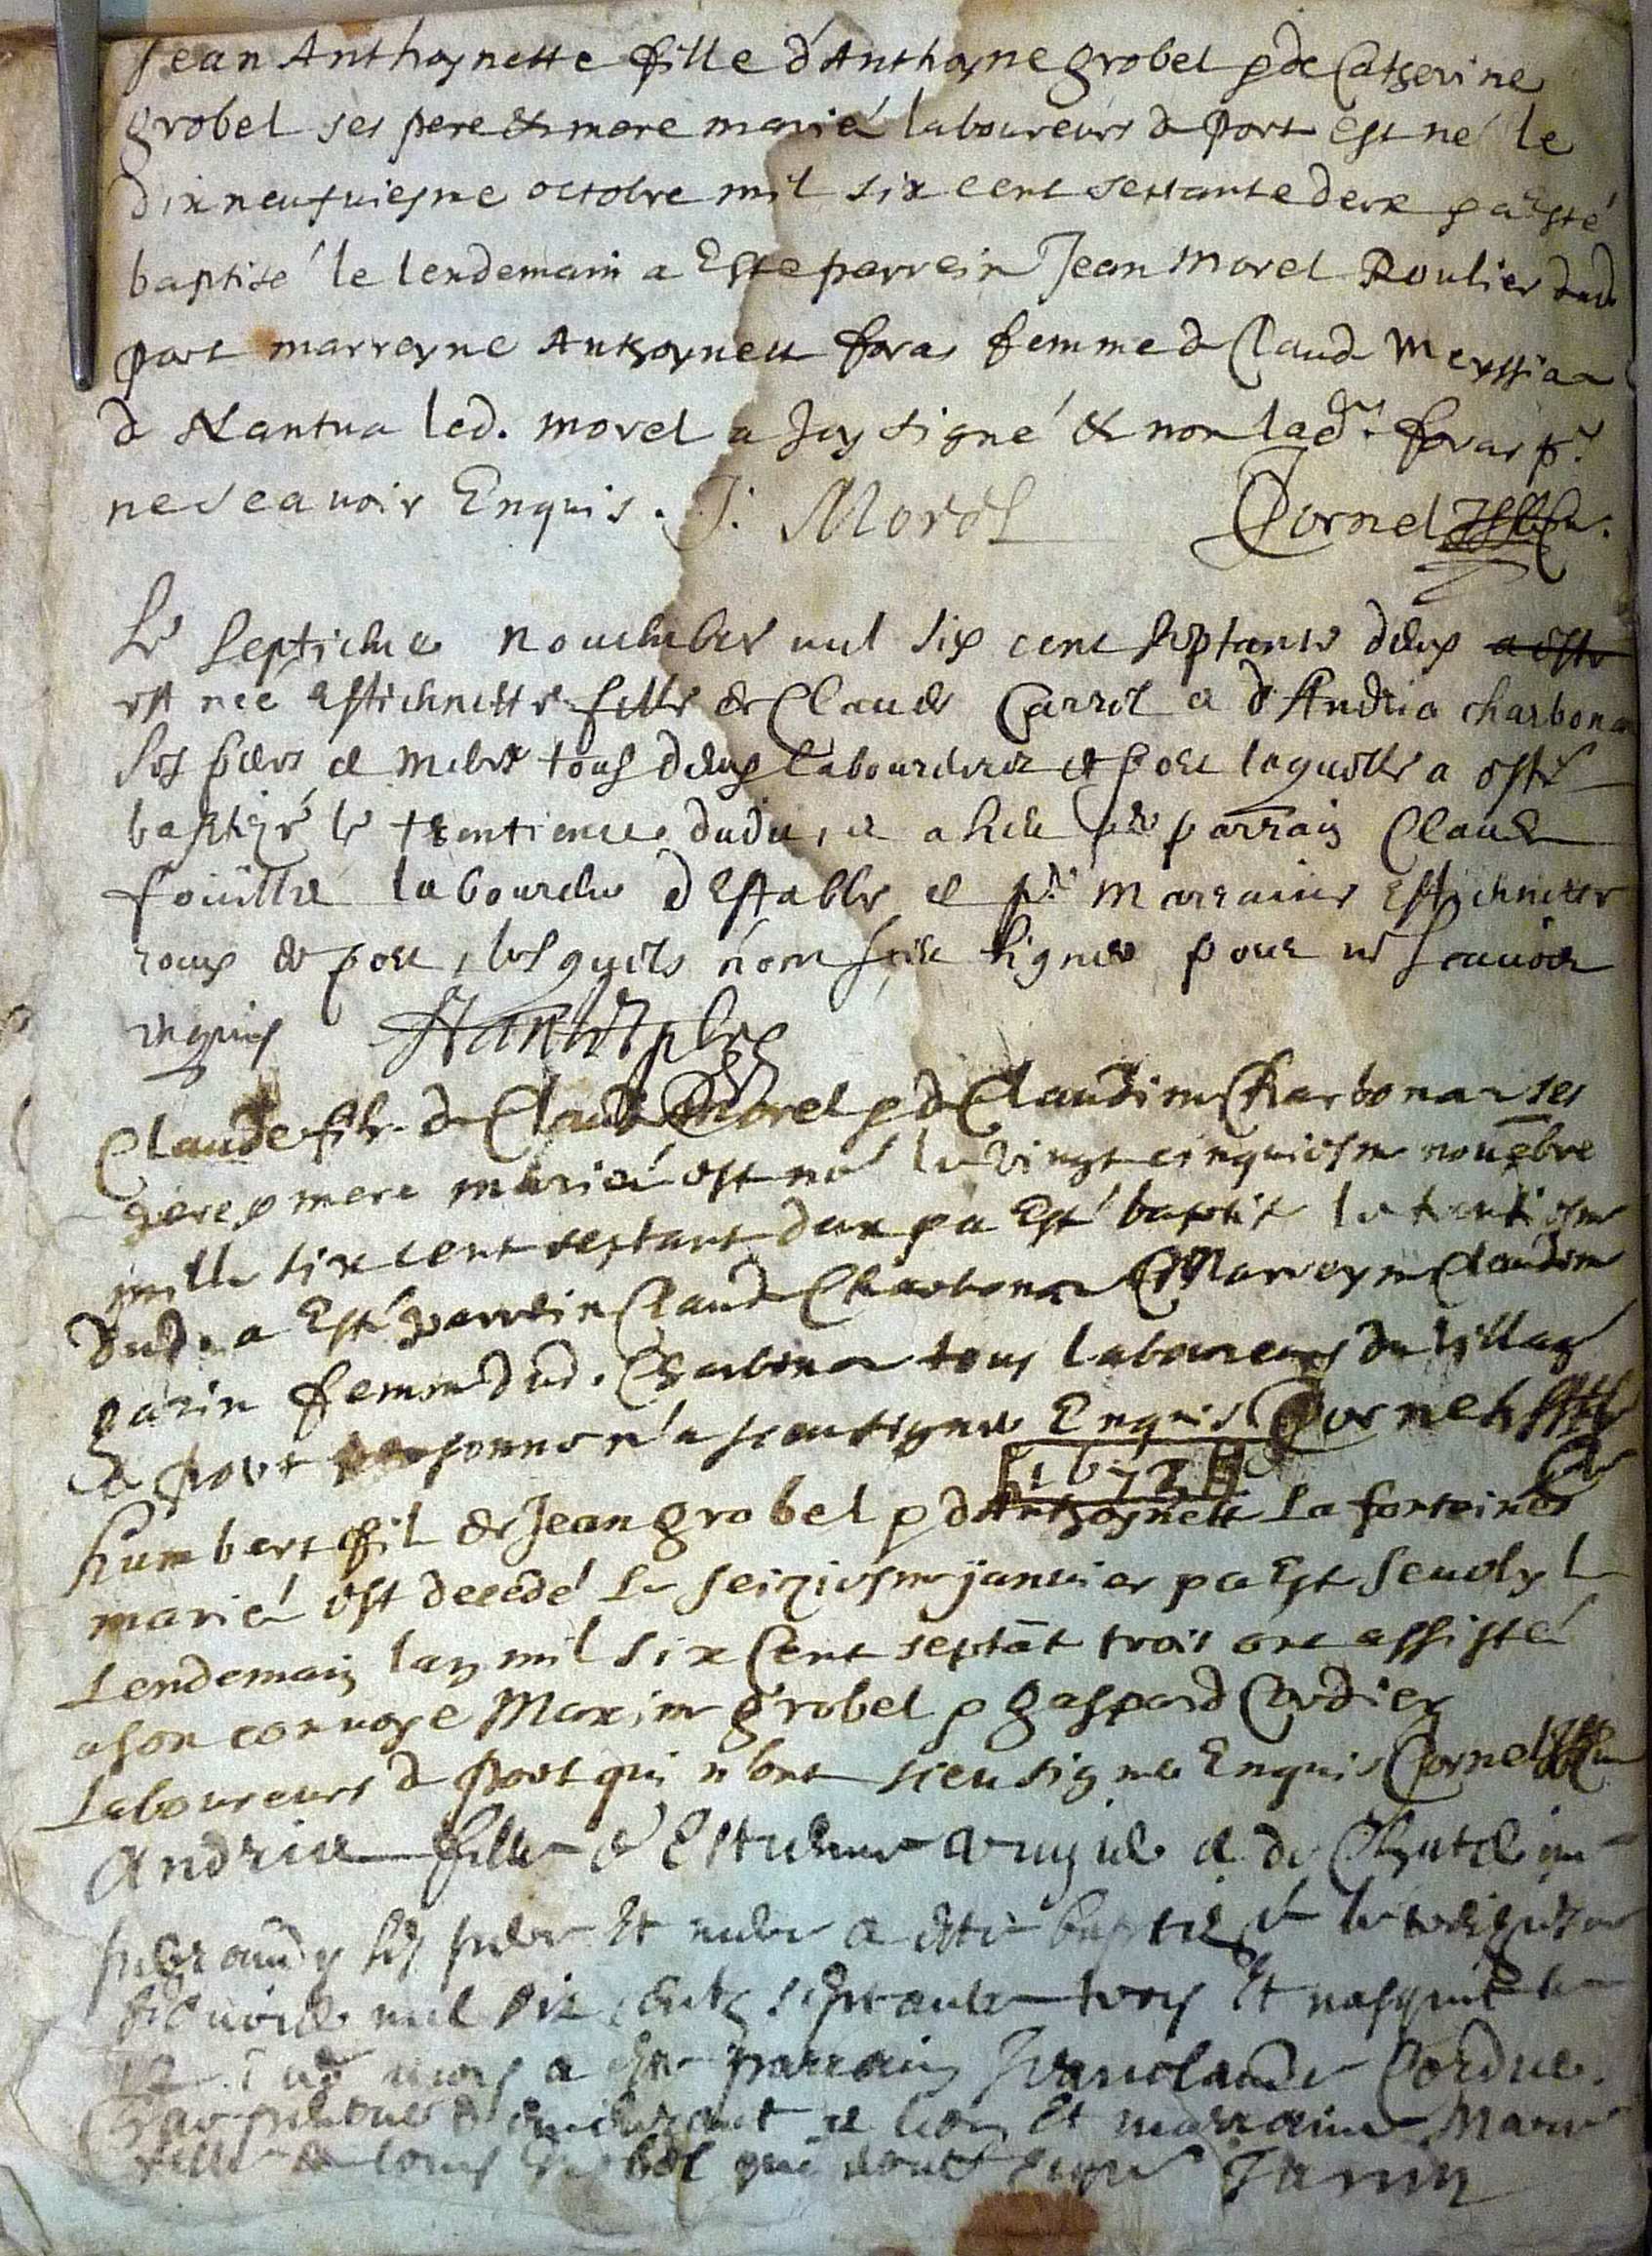 Jean Anthoynette fille d'Anthoyne grobel & de Catherine
grobel ses pere & mere mariés laboureurs de port est né le
dixneufuiesme octobre mil six cent septante deux & a esté
baptisé le lendemain a Este parrein Jean Morel Roulier dud
port marreyne Anthoynette foras femme de Claude Meyssiat
de Nantua led. morel a Icy signé & non lad. foras pr.
ne scavoir Enquis. J. Morel Cornel
Le septiesme nouembre mil six cent septante deux a este
est née Estiennette fille de Claude Carrel et d'Andria charbona
ses pere et mere tous deux laboureurs de port laquelle a esté
baptizé le trentieme dudit, et a heu pr parrain Claude
fouillie laboureur d'Estable et pr. Marraine Estiennette
roux de port, lesquels n'ont sceu signer pour ne scauoir
enquis
Claude fils de Claude Morel & de Claudine Charbonar ses
pere & mere mariés est né le vingt cinquiesme nouēbre
mille six cent septante deux & a Esté baptisé le trentiesme
dud. a Esté parrein Claude Charbonar & Marreyne Claudine
garin femme dud. Charbonar tous laboureurs du village
de port personne n'a sceu signer Enquis Cornel
1672
humbert fil de Jean grobel & d'Anthoynette La fonteine
mariés est decedé Le seiziesme januier & a Est seuely le
Lendemain lan mil six Cent septāte trois ont assisté
a son conuoye Maxime grobel & gaspard Cordier
Laboureurs de port qui n'ont sceu signer Enquis Cornel
Andrie fille d'Estienne et de
ses pere Et mere a este baptisé le
mil six cents septante troys Et nasquit le
12 dud moys a este parrain Cordier
Et marraine Marie
fille de Louys Grobel qui Janin